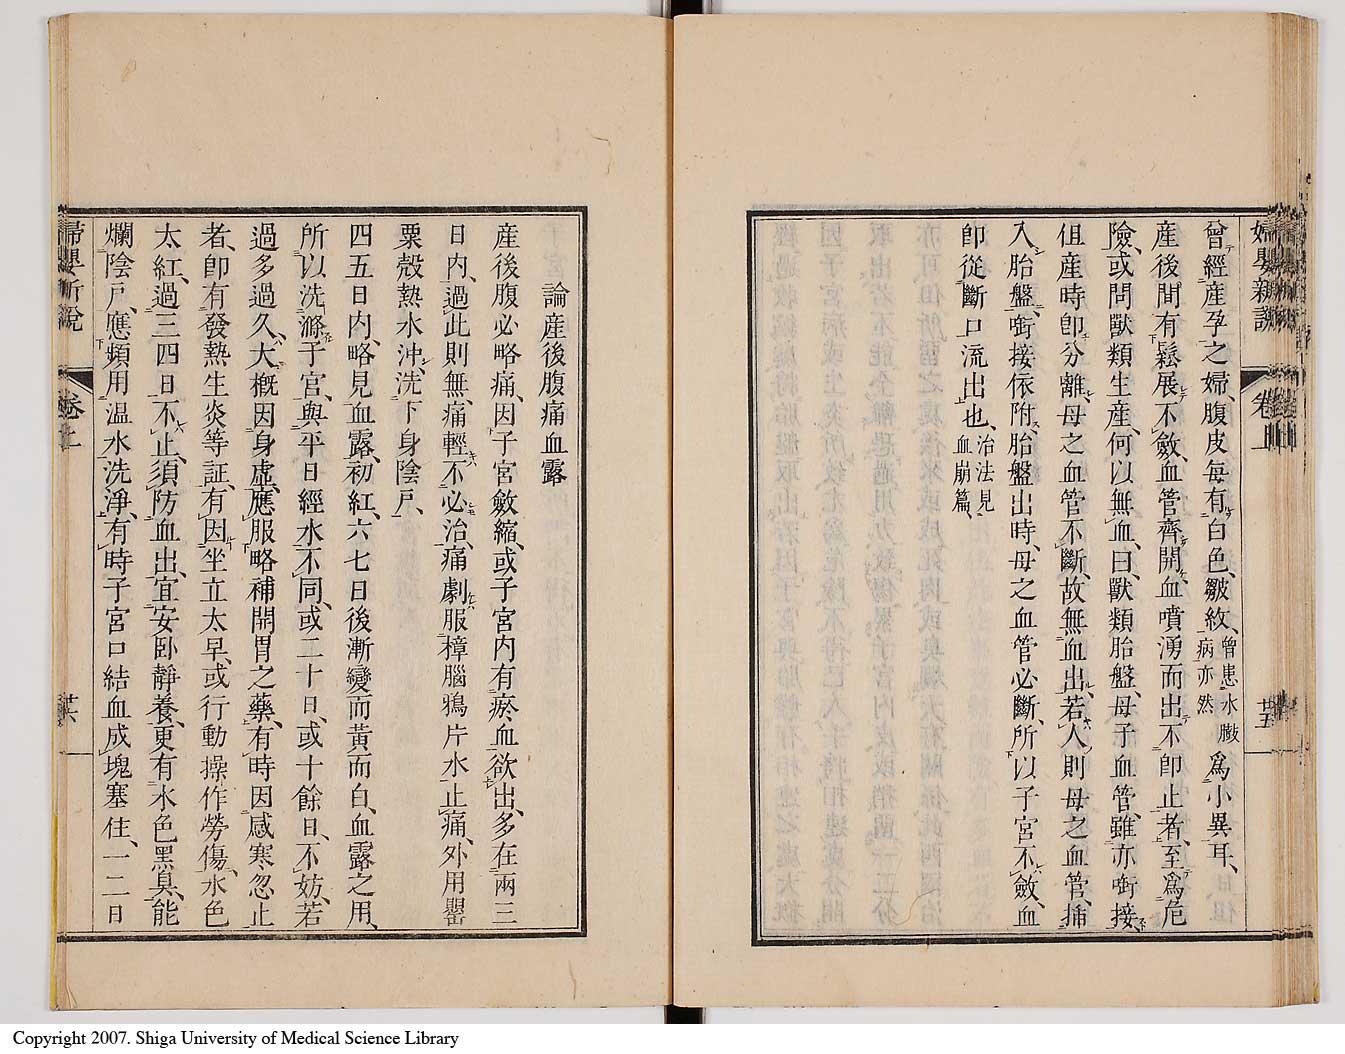 婦嬰新說 卷上 廿五
曾經產孕之婦、腹皮每有白色皺紋、曾患水臌病亦然為小異耳、
產後間有鬆展不斂、血管齊開、血噴湧而出、不即止者、至為危
險、或問獸類生產、何以無血、曰獸類胎盤、母子血管、雖亦啣接、
但產時即分離、母之血管不斷、故無血出、若人則母之血管、插
入胎盤、啣接依附、胎盤出時、母之血管必斷、所以子宮不斂、血
即從斷口流出也、治法見血崩篇、
論產後腹痛血露
產後腹必略痛、因子宮斂縮、或子宮內有瘀血欲出、多在兩三
日內、過此則無、痛輕不必治、痛劇服樟腦鴉片水止痛、外用罌
粟殼熱水沖洗下身陰戶、
四五日內、略見血露、初紅、六七日後漸變而黃而白、血露之用、
所以洗滌子宮、與平日經水不同、或二十日、或十餘日、不妨、若
過多過久、大概因身虛、應服略補開胃之藥、有時因感寒忽止
者、即有發熱生炎等証、有因坐立太早、或行動操作勞傷、水色
太紅、過三四日不止、須防血出、宜安卧靜養、更有水色黑臭、能
爛陰戶、應頻用温水洗淨、有時子宮口結血成塊塞住、一二日
婦嬰新說 卷上 廿六
Copyright 2007. Shiga University of Medical Science Library